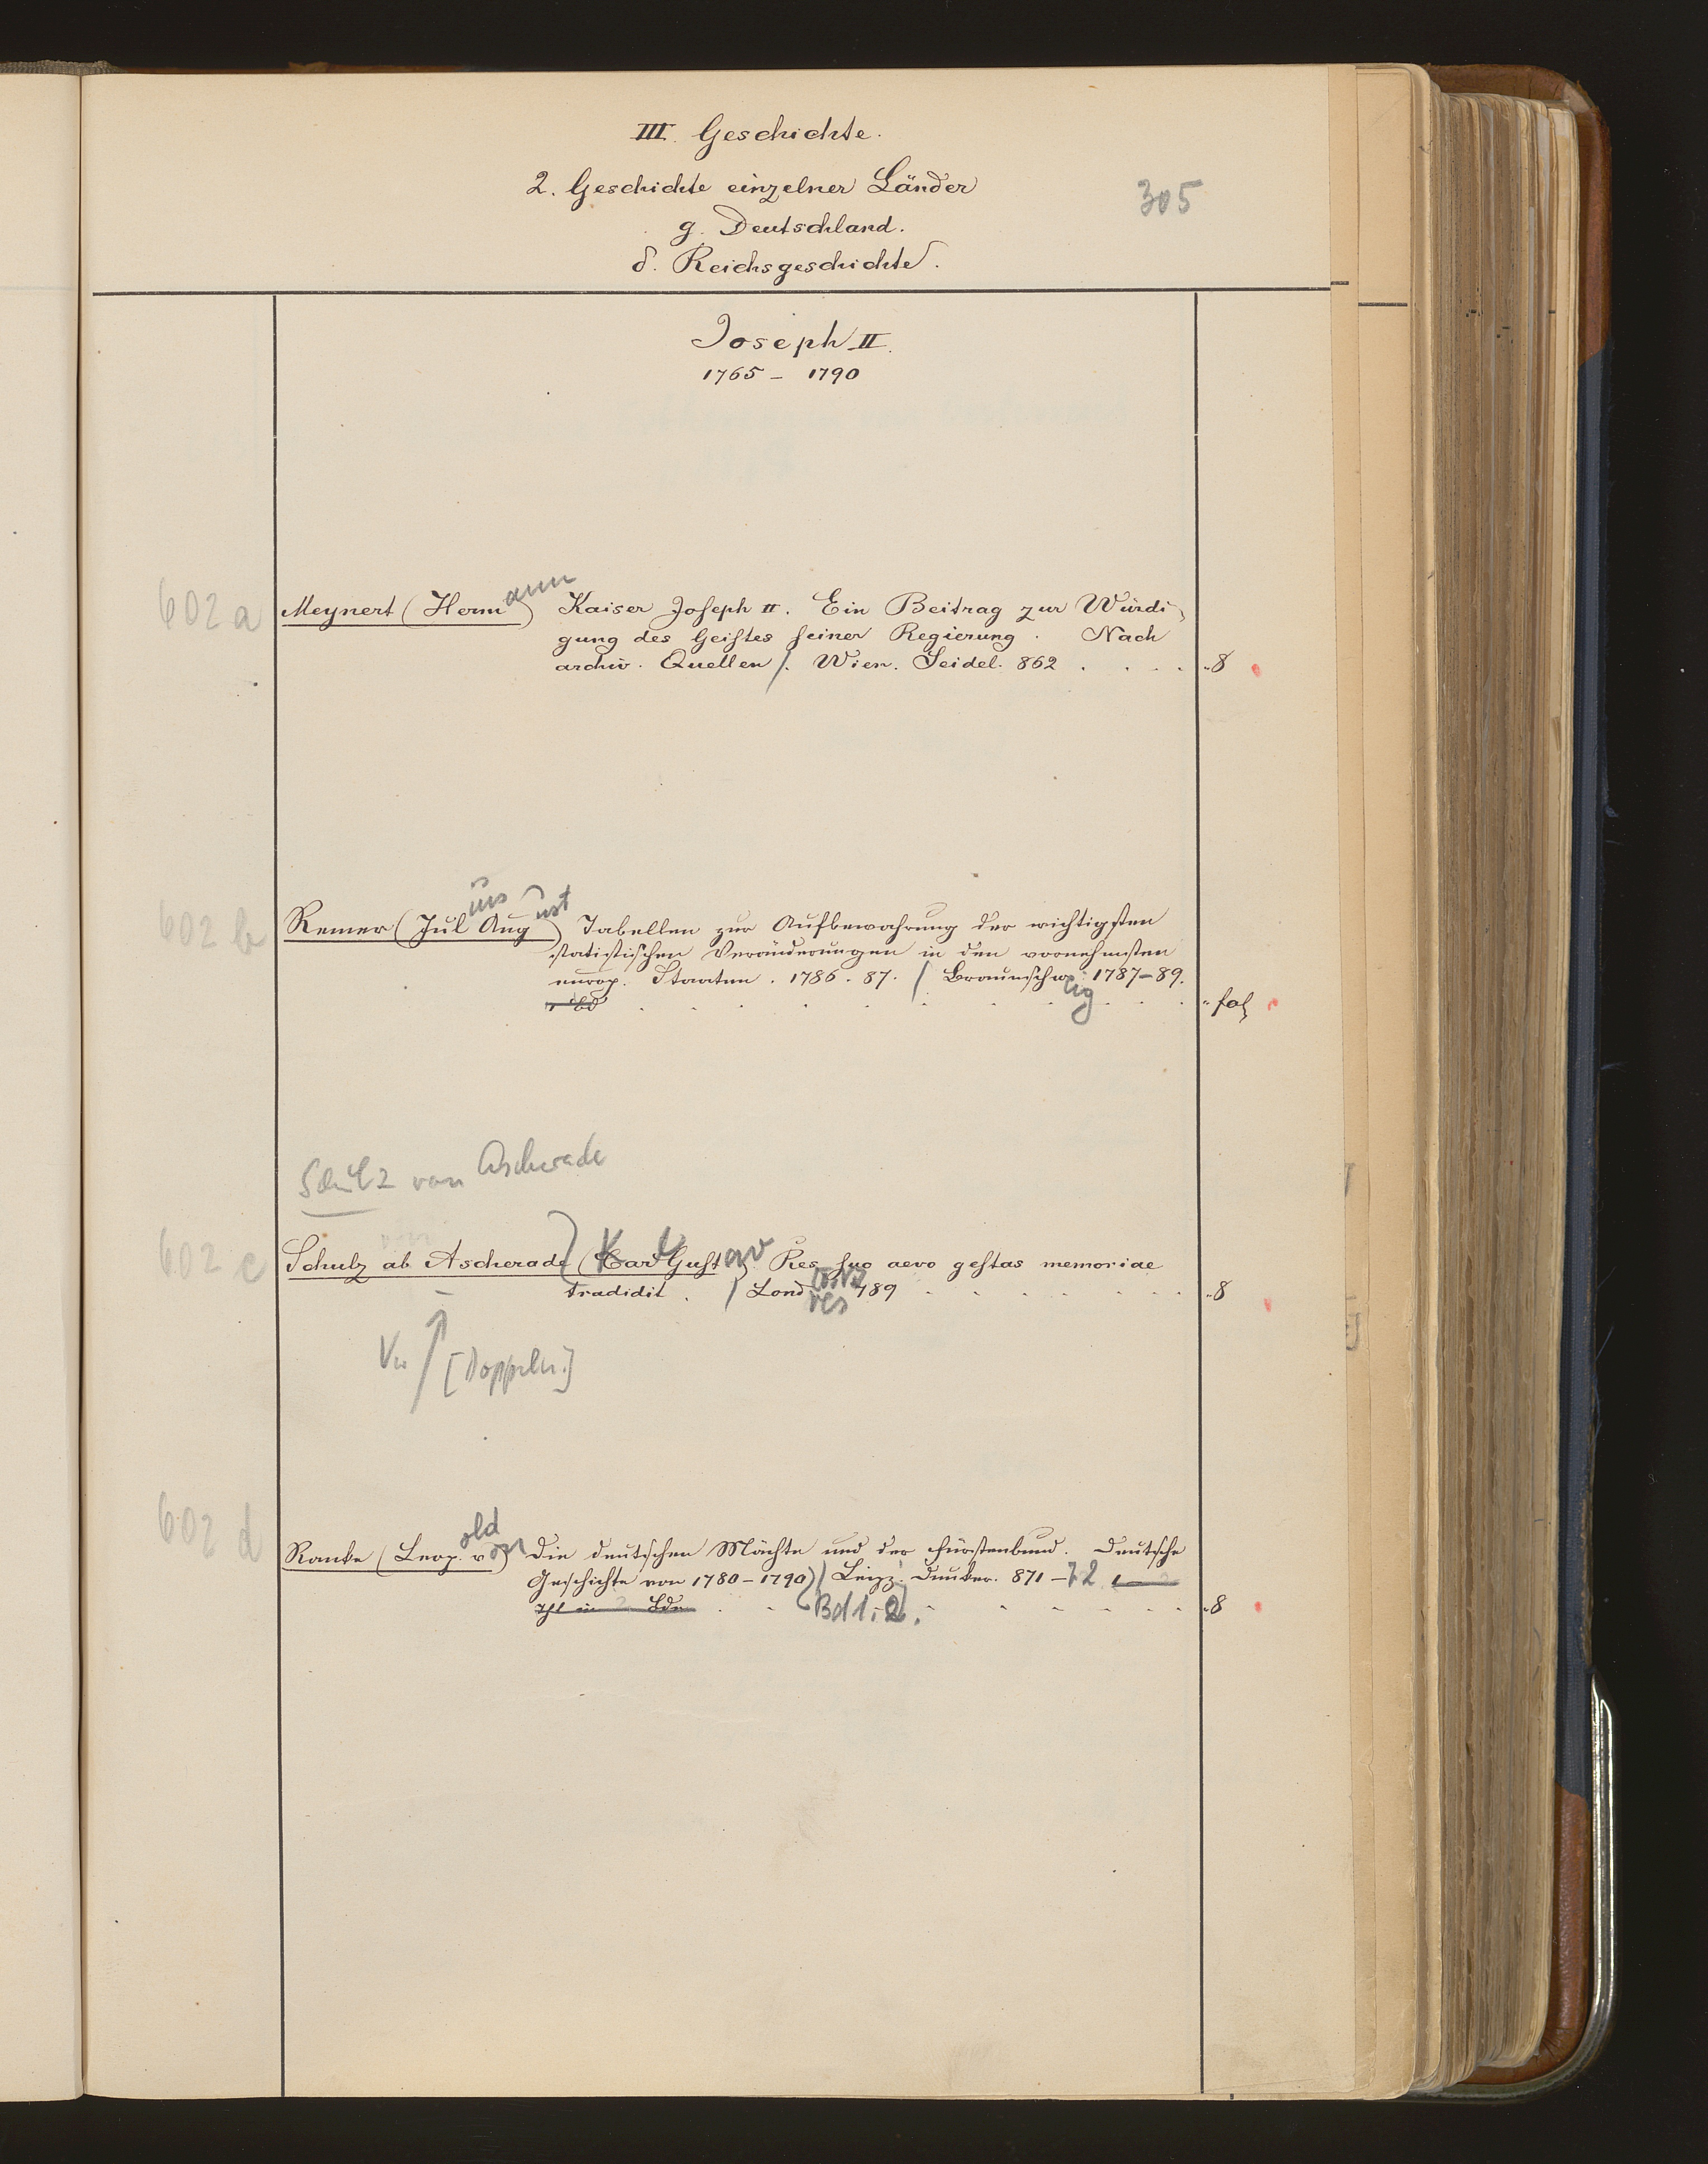 III. Geschichte.
2. Geschichte einzelner Länder
305
g. Deutschland.
δ. Reichsgeschichte.
Joseph II.
1765 – 1790
602 a Meynert (Hermann) Kaiser Joseph II. Ein Beitrag zur Würdi-
gung des Geistes seiner Regierung. Nach
archiv. Quellen /. Wien. Seidel. 862 . . . . "8
602 b Remer (Julius August) Tabellen zur Aufbewahrung der wichtigsten
statistischen Veränderungen in den vornehmsten
europ. Staaten. 1786. 87. / Braunschweig 1787–89.
"fol
Schulz von Ascherade
602 c Schulz ab Ascherade (Karl Gustav) Res suo aevo gestas memoriae
tradidit. / Lond 789 . . . . . . "8
[Doppeln.]
602 d Ranke (Leopold von) Die deutschen Mächte und der Fürstenbund. Deutsche
Geschichte von 1780–1790) / Leipz. Dunker. 871–72
Bd 1. 2. . . . . . . "8